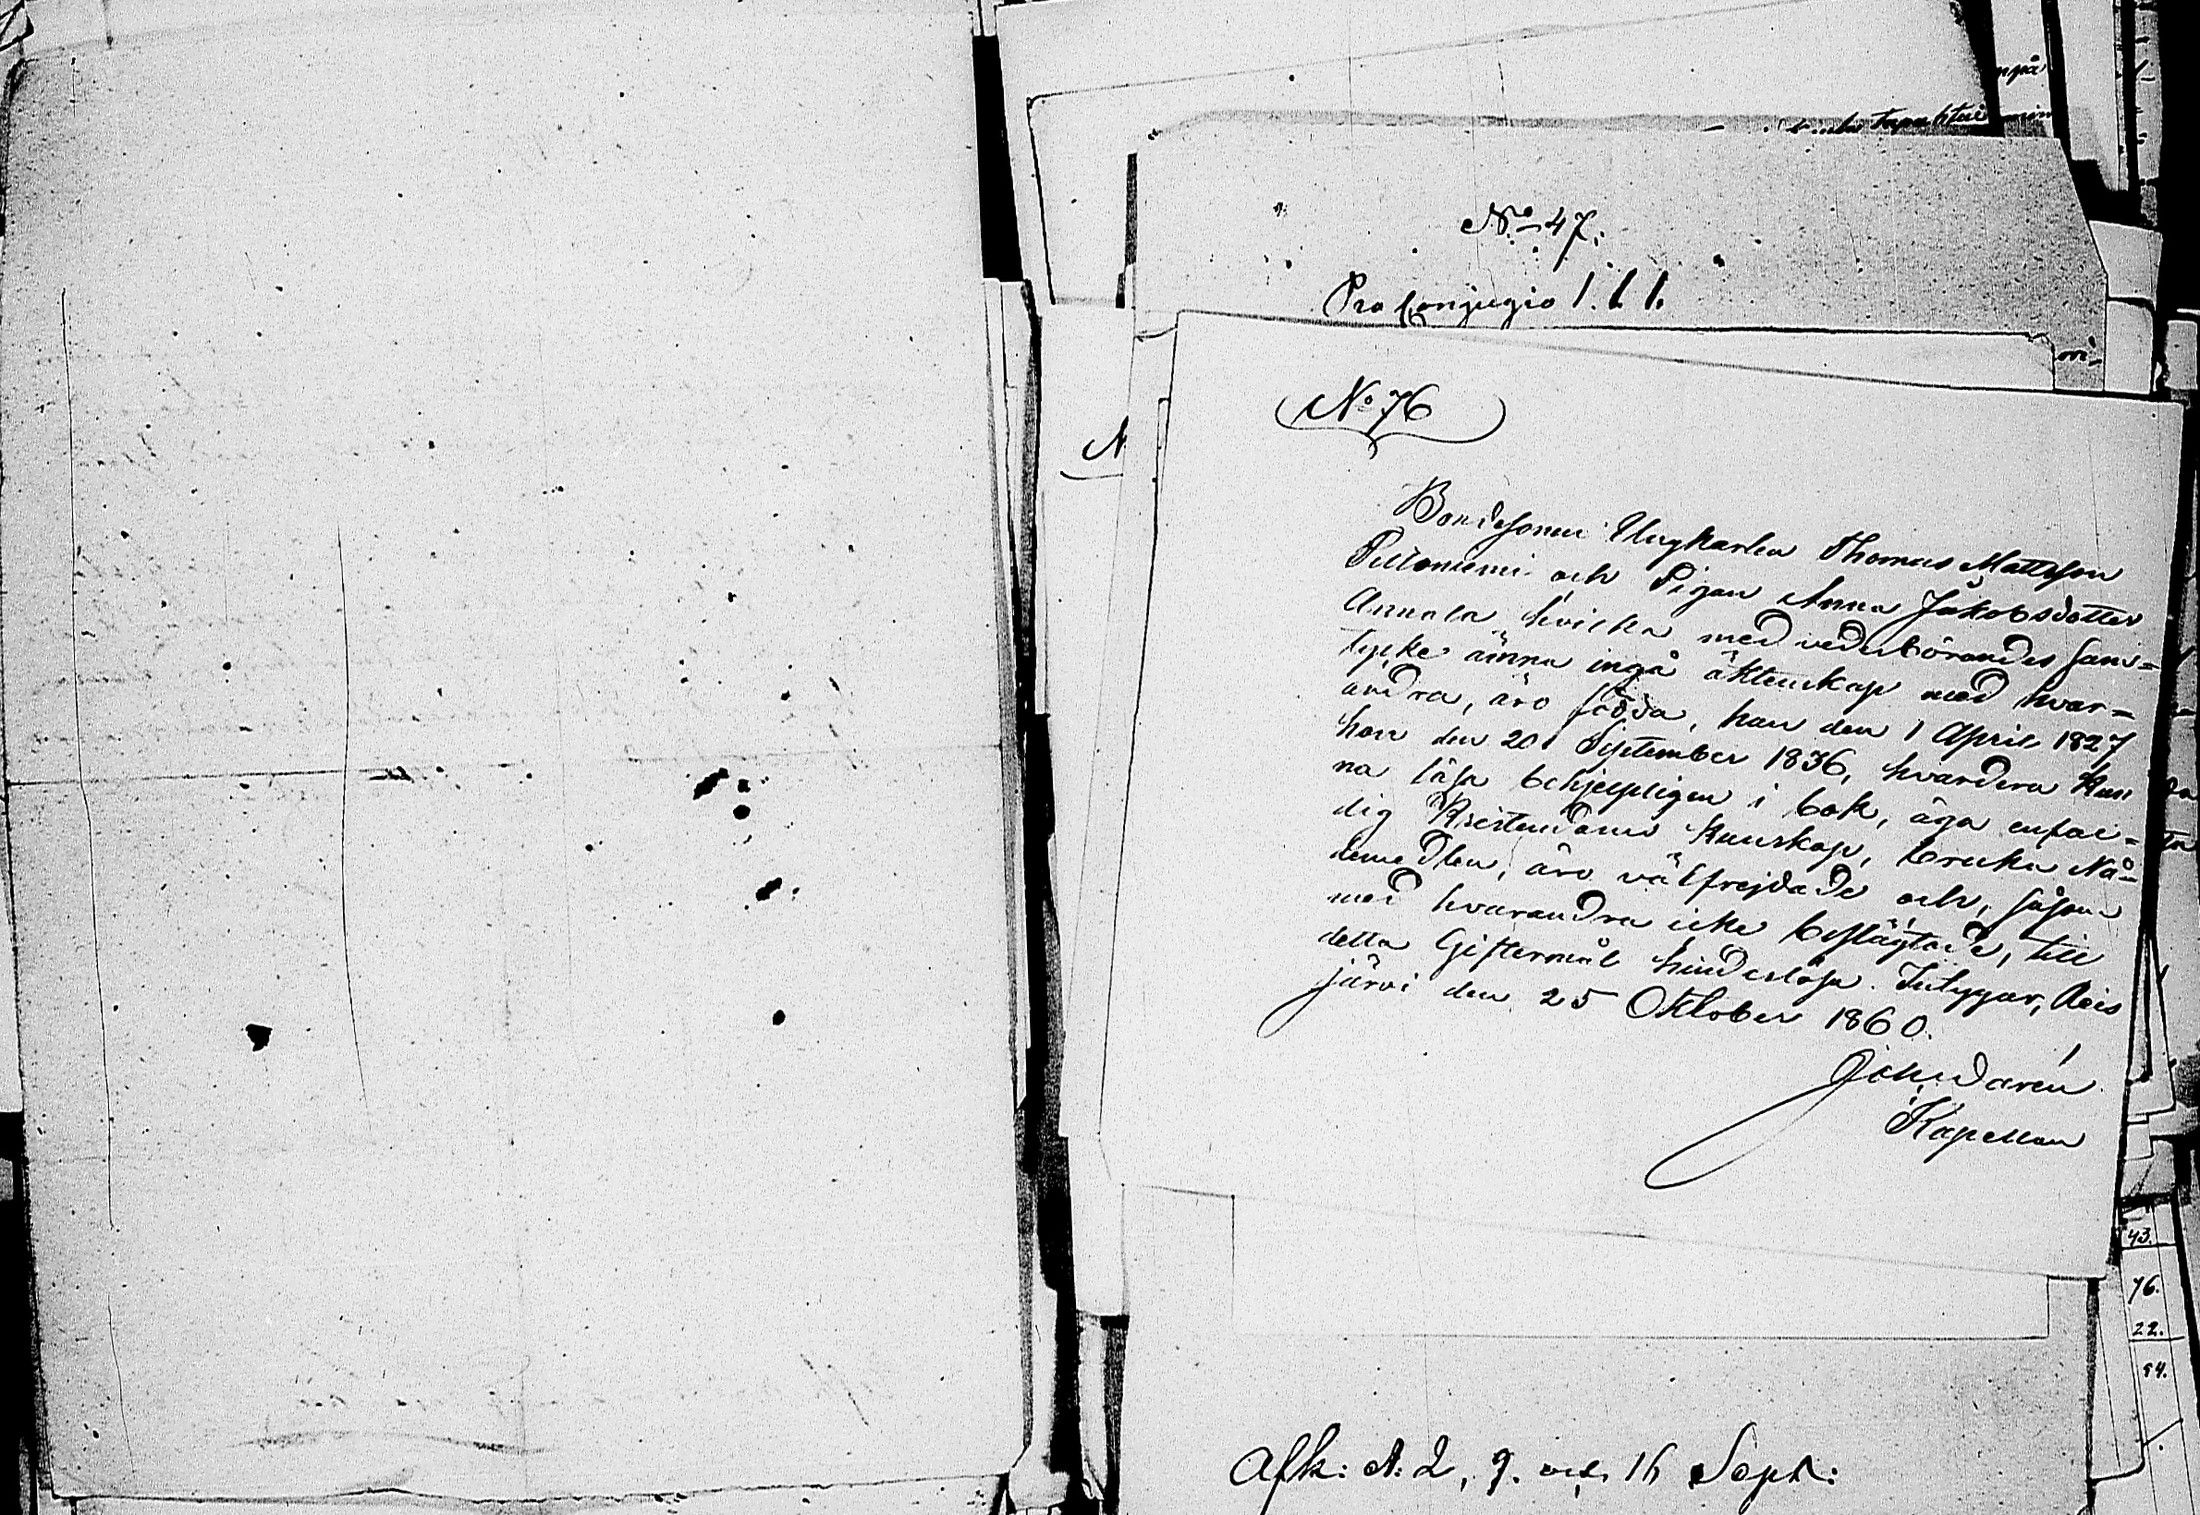 No 47.
Pro Conjugio 1. 1 1.
No 76
Bondesonen Ungkarlen Thomas Mattsson
Pietoniemi och Pigan Anna Jakobsdotter
Annala hvilka med vederbörandes sam=
tycke ämna ingå äktenskap med hvar=
andra, äro födda, han den 1 April 1827
hon den 20 September 1836, hvardera kun
na läsa behjelpligen i bok, äga enfal=
dig Kristendoms kunskap, bruka Nå=
demedlen, äro välfrejdade och, såsom
med hvarandra icke beslägtade, till
detta Giftermål hinderslösa. Intygar, Reis
järvi den 25 Oktober 1860.
Kapellan
Afk: d: 2, 9. och 16 Sept:
43.
76.
22.
94.